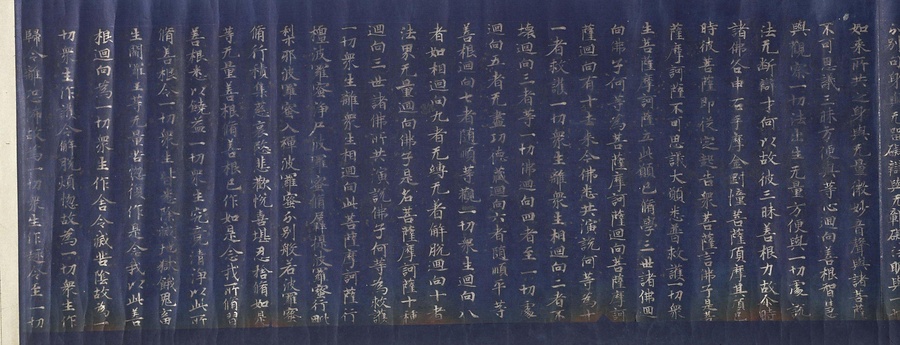 如来所共之身與无量微妙音聲與諸菩薩
不可思議三昧方便與等心迴向善根智慧
與觀察一切法出生无量方便與一切處流
法无斷辯才何以故彼三昧善根力故尒時
諸佛各申右手摩金剛幢菩薩頂摩其頂
時彼菩薩即從定起告衆菩薩言佛子是
薩摩訶薩不可思議大願悉普救護一切衆
生菩薩摩訶薩立此願已脩學三世諸佛迴
向佛子何等為菩薩摩訶薩迴向菩薩摩訶
薩迴向有十去来今佛悉共演說何等為十
一者救護一切衆生離衆生相迴向二者不
壞迴向三者等一切佛迴向四者至一切處
迴向五者无盡功德藏迴向六者隨順平等
善根迴向七者隨順等觀一切衆生迴向八
者如相迴向九者无縛无着解脫迴向十者
法界无量迴向佛子是名菩薩摩訶薩十種
迴向三世諸佛所共演說佛子何等為救護
一切衆生離衆生相迴向此菩薩摩訶薩行
檀波羅蜜淨尸波羅蜜脩羼提波羅蜜行毗
梨耶波羅蜜入禪波羅蜜分別般若波羅蜜
脩行積集慈哀慈悲歡悅喜堪忍捨脩如是
等无量善根脩善根已作如是念我所脩習
善根悉以饒益一切衆生究竟清淨以此所
脩善根令一切衆生皆悉除滅地獄餓鬼畜
生閻羅王等无量苦惱復作是念我以此善
根迴向為一切衆生作舍令滅苦陰故為一
切衆生作救令解脫煩惱故為一切衆生作
歸令離恐怖故為一切衆生作趣令至一切